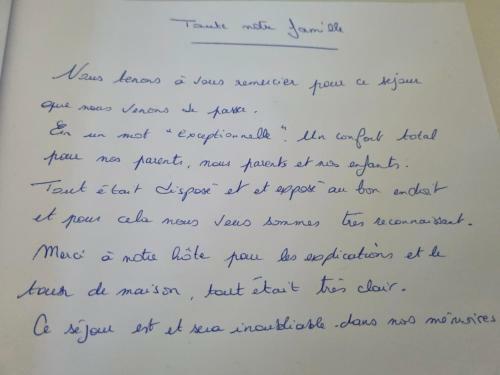 Toute notre famille
Nous tenons à vous remercier pour ce séjour
que nous venons de passer.
En un mot "exceptionnelle". Un confort total
pour nos parents, nous parents et nos enfants.
Tout était disposé et et exposé au bon endroit
et pour cela nous vous sommes très reconnaissant.
Merci à notre hôte pour les explications et le
tour de maison, tout était très clair.
Ce séjour est et sera inoubliable dans nos mémoires